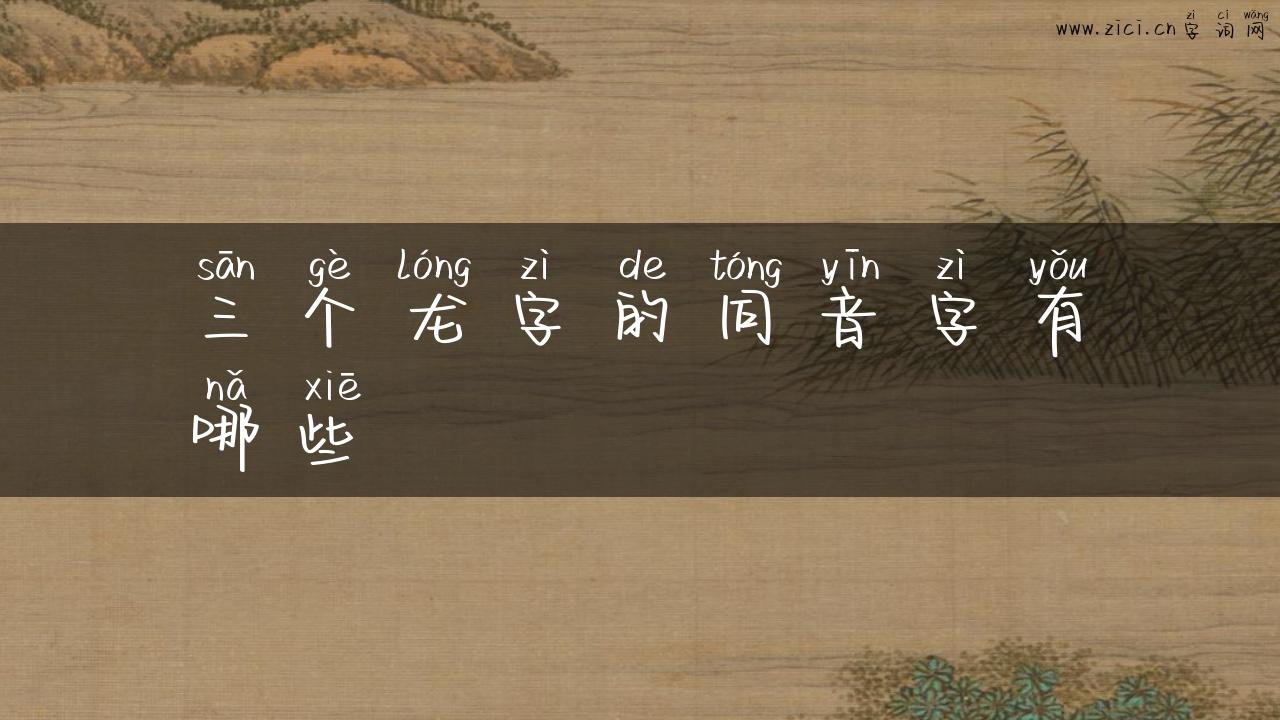 www.zici.cn zì cí wǎng
字词网
sān gè lóng zì de tóng yīn zì yǒu
三个龙字的同音字有
nǎ xiē
哪些